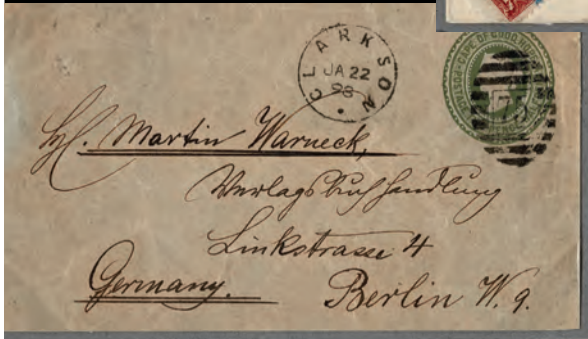 CLARKSON
JA 22
98
CAPE OF GOOD HOPE
Martin Warneck,
Verlagsbuchhandlung
Linkstrasse 4
Germany.
Berlin W. 9.